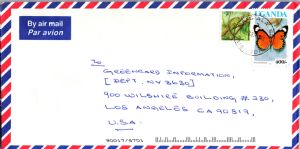 By air mail
Par avion
UGANDA
400/-
TO
GREENCARD INFORMATION,
[DEPT. NY3630]
900 WILSHIRE BUILDING # 230,
LOS ANGELES CA 90317,
U.S.A.